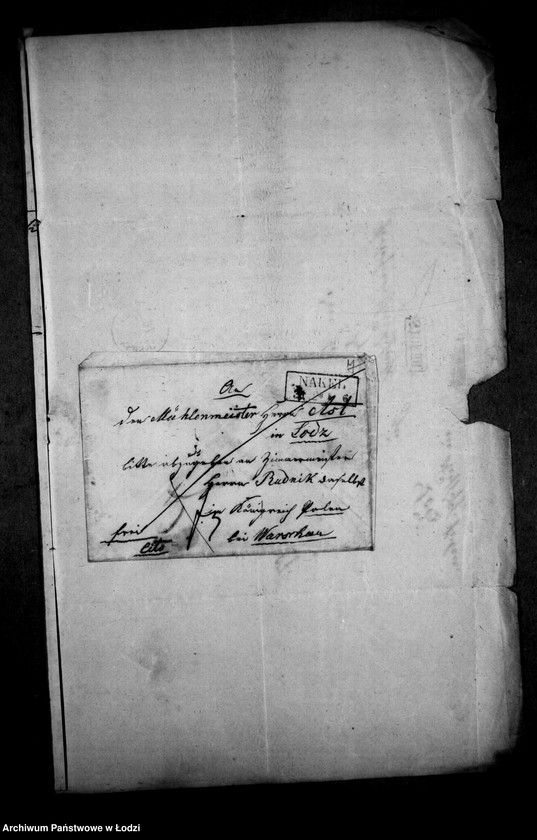 An
NAKEL
den Mühlenmeister Herrn
in Lodz
bitte abzugeben an Zimmermeister
Herrn Rudnik daselbst
im Königreich Polen
bei Warschau
frei
cito
Archiwum Państwowe w Łodzi